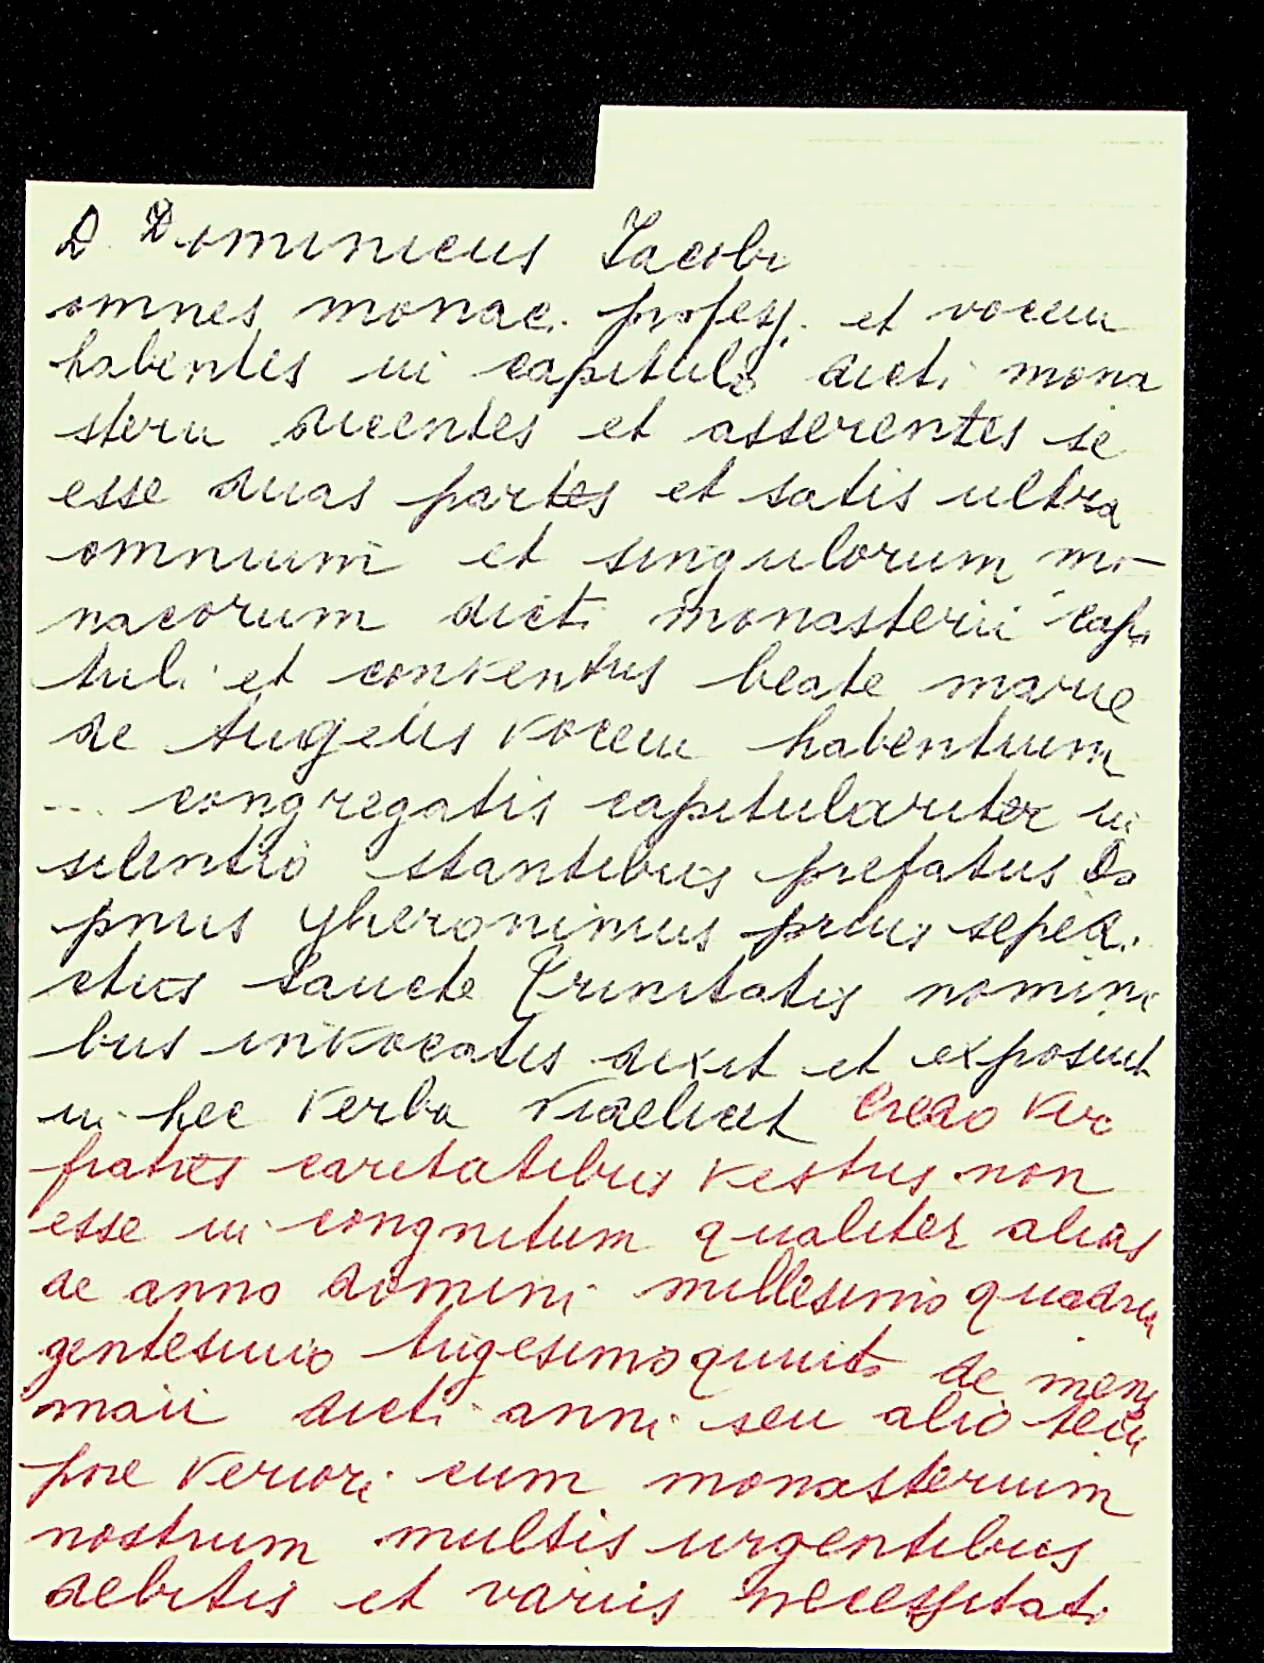 D. Dominicus Iacobi
omnes monac. profess. et vocem
habentes in capitulo dicti mona
sterii dicentes et asserentes se
esse duas partes et satis ultra
omnium et singulorum mo-
nacorum dicti monasterii capi
tuli et conventus beate marie
de Angelis vocem habentium
... congregatis capitulariter in
silentio stantibus prefatus Do
pnus yheronimus prius sepedi
ctus Sancte Trinitatis nomini
bus invocatis dixit et exposuit
in hec verba videlicet Credo viri
fratres caritatibus vestris non
esse in congnitum qualiter alias
de anno domini millesimo quadrin
gentesimo trigesimoquinto de mens
maii dicti anni seu alio tem
pore veriori cum monasterium
nostrum multis urgentibus
debitis et variis necessitati